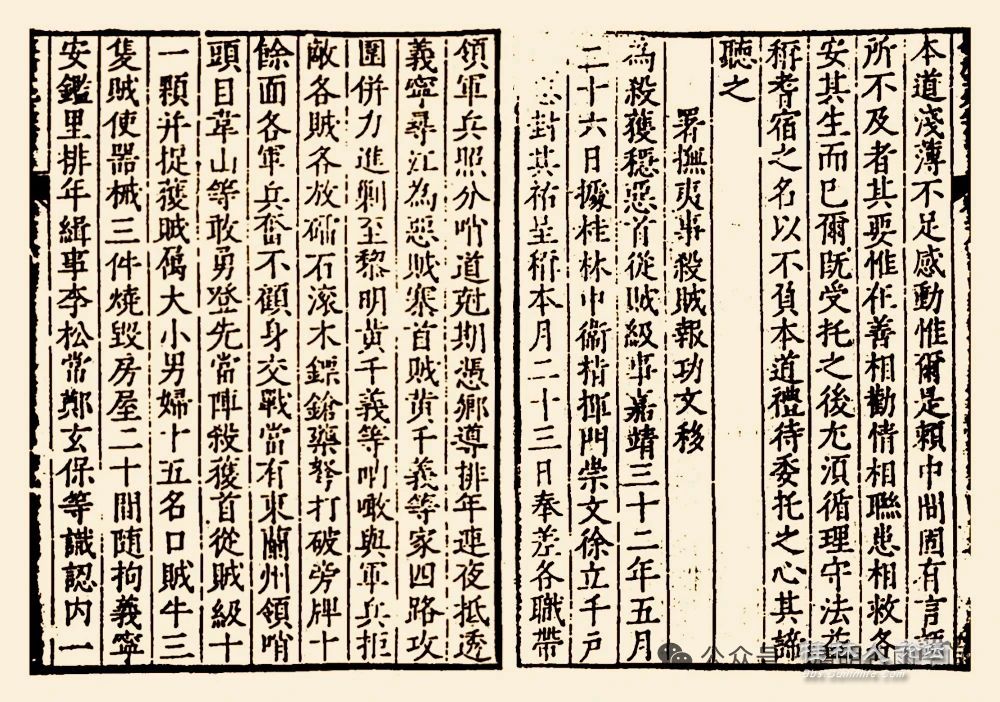 本道淺薄不足感動惟爾是頼中間固有言
所不及者其要惟在善相勸情相聯患相救各
安其生而已爾既受托之後尤須循理守法
稱耆宿之名以不負本道禮待委托之心其諦
聽之
署撫夷事殺賊報功文移
為殺獲穩惡首從賊級事嘉靖三十二年五月
二十六日據桂林中衞指揮門崇文徐立千戸
封其祐呈稱本月二十三日奉差各職帶
領軍兵照分哨道尅期憑鄉導排年連夜抵透
義寧尋江為惡賊寨首賊黄千義等家四路攻
圍併力進剿至黎明黄千義等吶噉與軍兵拒
敵各賊各放礌石滚木鏢鎗藥弩打破旁牌十
餘面各軍兵奮不顧身交戰當有東蘭州領哨
頭目韋山等敢勇登先當陣殺獲首從賊級十
一顆并捉獲賊屬大小男婦十五名口賊牛三
隻賊使器械三件燒毀房屋二十間随拘義寧
安鑑里排年緝事李松常鄭玄保等識認内一
公众号